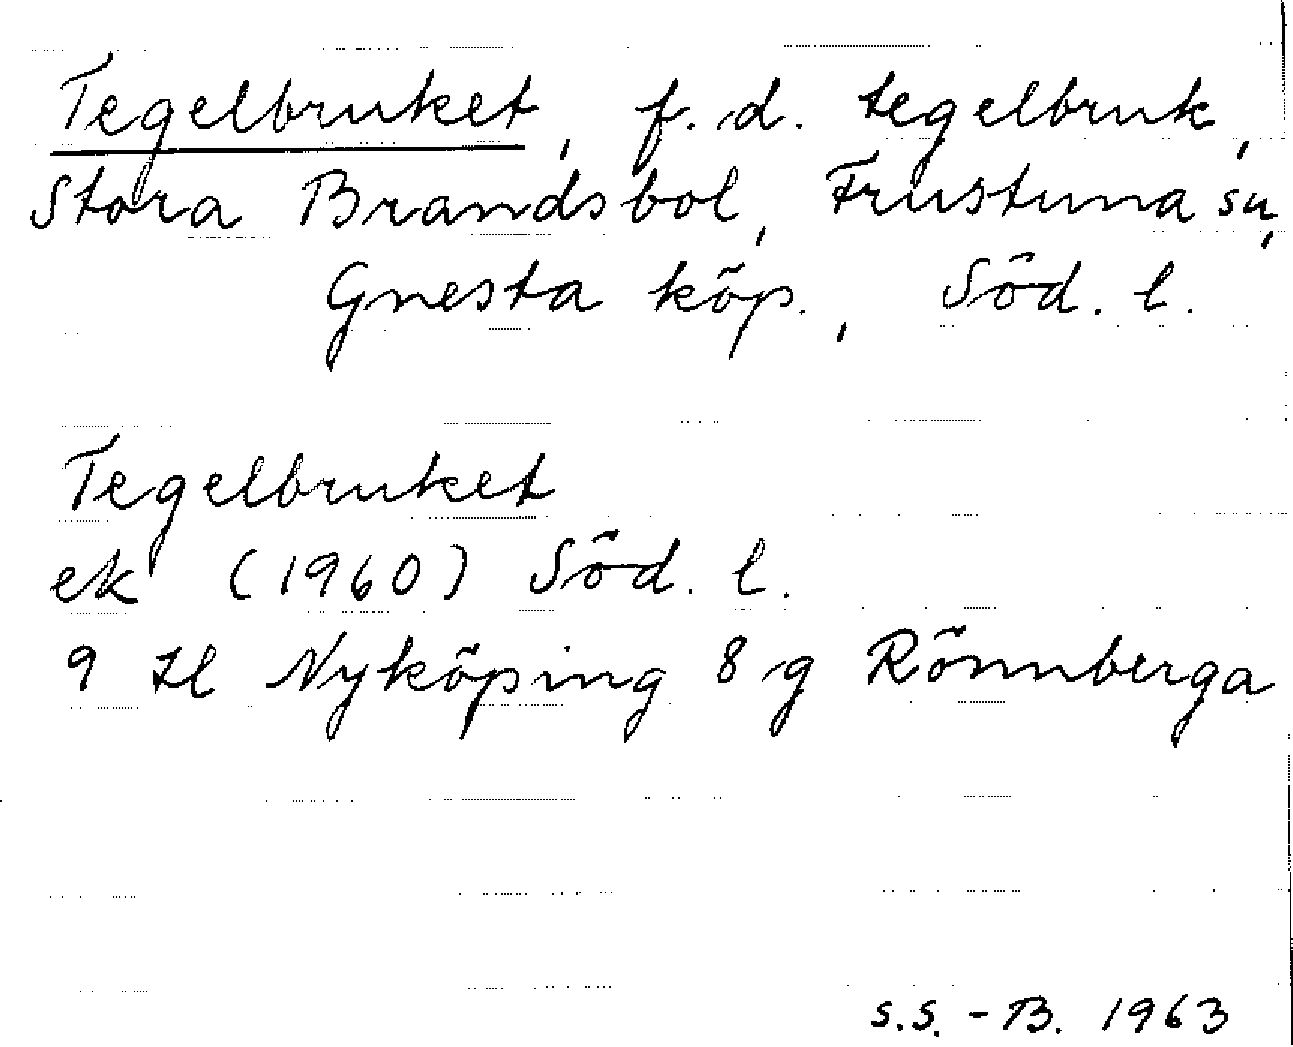 Tegelbruket, f.d. tegelbruk,
Stora Brandsbol, Frustuna sn,
Gnesta köp., Söd. l.
Tegelbruket
ek (1960) Söd. l.
9 H Nyköping 8 g Rönnberga
S.S.-B. 1963